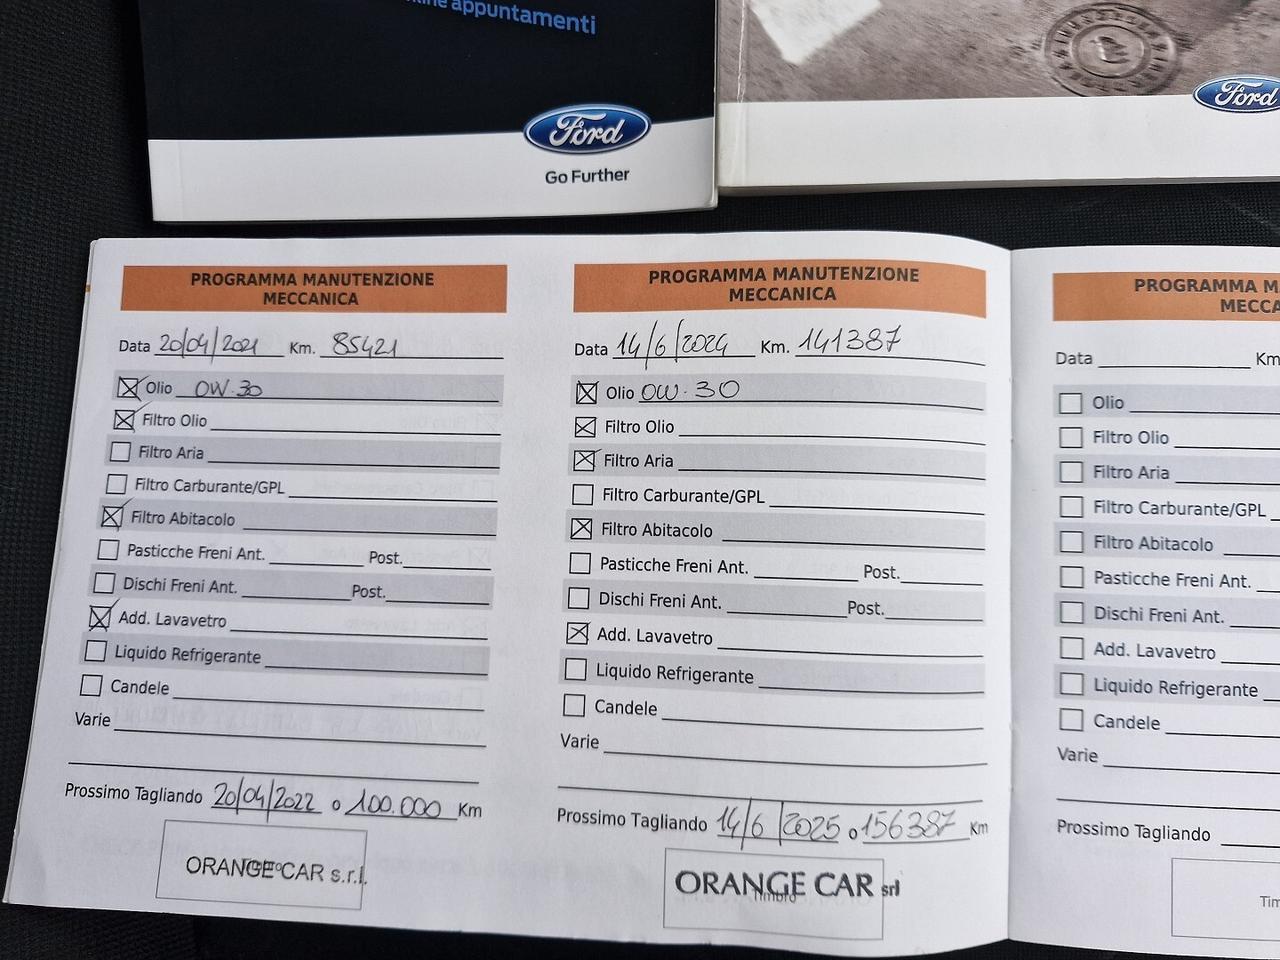 online appuntamenti
Ford
Go Further
Ford
PROGRAMMA MANUTENZIONE
MECCANICA
Data 20/04/2021 Km. 85421
Olio 0W-30
Filtro Olio
Filtro Aria
Filtro Carburante/GPL
Filtro Abitacolo
Pasticche Freni Ant. Post.
Dischi Freni Ant. Post.
Add. Lavavetro
Liquido Refrigerante
Candele
Varie
Prossimo Tagliando 20/04/2022 o 100.000 Km
Timbro
ORANGE CAR s.r.l.
PROGRAMMA MANUTENZIONE
MECCANICA
Data 14/6/2024 Km. 141387
Olio 0W-30
Filtro Olio
Filtro Aria
Filtro Carburante/GPL
Filtro Abitacolo
Pasticche Freni Ant. Post.
Dischi Freni Ant. Post.
Add. Lavavetro
Liquido Refrigerante
Candele
Varie
Prossimo Tagliando 14/6/2025 o 156387 Km
ORANGE CAR srl
Timbro
PROGRAMMA M
MECCA
Data Km
Olio
Filtro Olio
Filtro Aria
Filtro Carburante/GPL
Filtro Abitacolo
Pasticche Freni Ant.
Dischi Freni Ant.
Add. Lavavetro
Liquido Refrigerante
Candele
Varie
Prossimo Tagliando
Tim